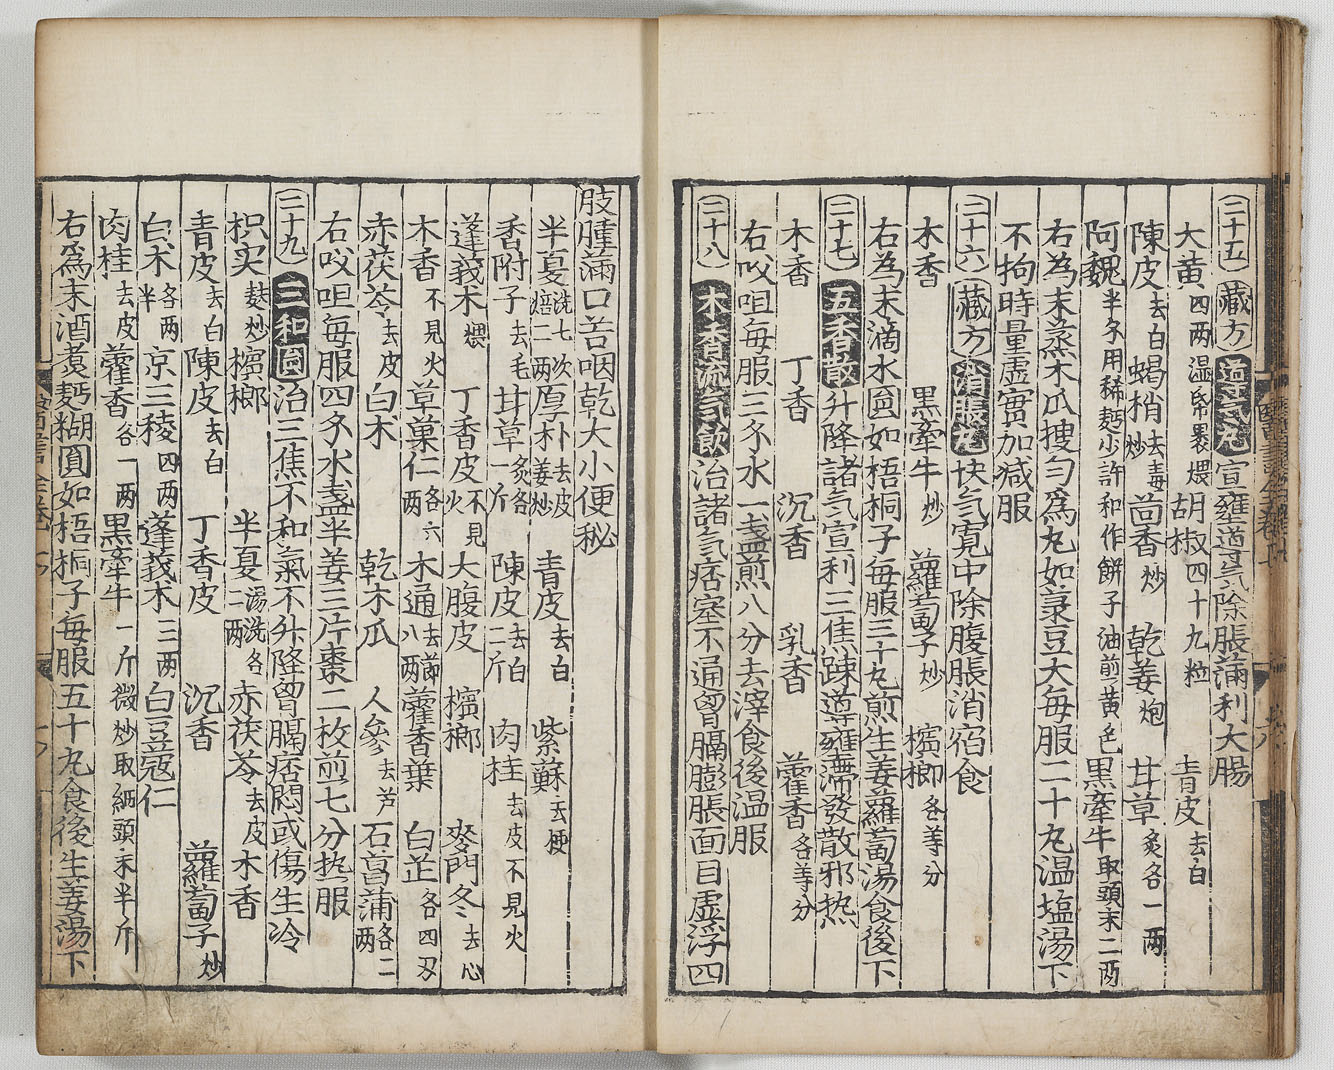 二十五 藏方 導气丸 宣壅導气除脹滿利大腸
大黄四两湿帋裹煨 胡椒四十九粒 青皮去白
陳皮去白 蝎梢去毒炒 茴香炒 乾姜炮 甘草炙各一两
阿魏半分用稀麪少許和作餅子油煎黄色 黒牽牛取頭末二两
右為末蒸木瓜搜匀爲丸如菉豆大每服二十丸温塩湯下
不拘時量虚實加减服
二十六 藏方 消脹丸 快气寛中除腹脹消宿食
木香 黒牽牛炒 蘿蔔子炒 檳榔各等分
右為末滴水圎如梧桐子每服三十丸煎生姜蘿蔔湯食後下
二十七 五香散 升降諸气宣利三焦踈導壅滞發散邪热
木香 丁香 沉香 乳香 藿香各等分
右㕮咀每服三分水一盞煎八分去滓食後温服
二十八 木香流气飲 治諸气痞塞不通胷膈膨脹面目虚浮四
肢腫滿口苦咽乾大小便秘
半夏洗七次焙二两 厚朴去皮姜炒 青皮去白 紫蘇去梗
香附子去毛 甘草炙各一斤 陳皮去白二斤 肉桂去皮不見火
蓬莪朮煨 丁香皮不見火 大腹皮 檳榔 麥門冬去心
木香不見火 草菓仁各六两 木通去節八两 藿香葉 白芷各四两
赤茯苓去皮 白朮 乾木瓜 人參去芦 石菖蒲各二两
右㕮咀每服四分水盞半姜三片棗二枚煎七分热服
二十九 三和圎 治三焦不和氣不升降胷膈痞悶或傷生冷
枳实麸炒 檳榔 半夏湯洗各二两 赤茯苓去皮 木香
青皮去白 陳皮去白 丁香皮 沉香 蘿蔔子炒
白朮各两半 京三稜四两 蓬莪朮三两 白豆蔻仁
肉桂去皮 藿香各一两 黒牽牛一斤微炒取細頭末半斤
右爲末酒煑麪糊圎如梧桐子每服五十丸食後生姜湯下